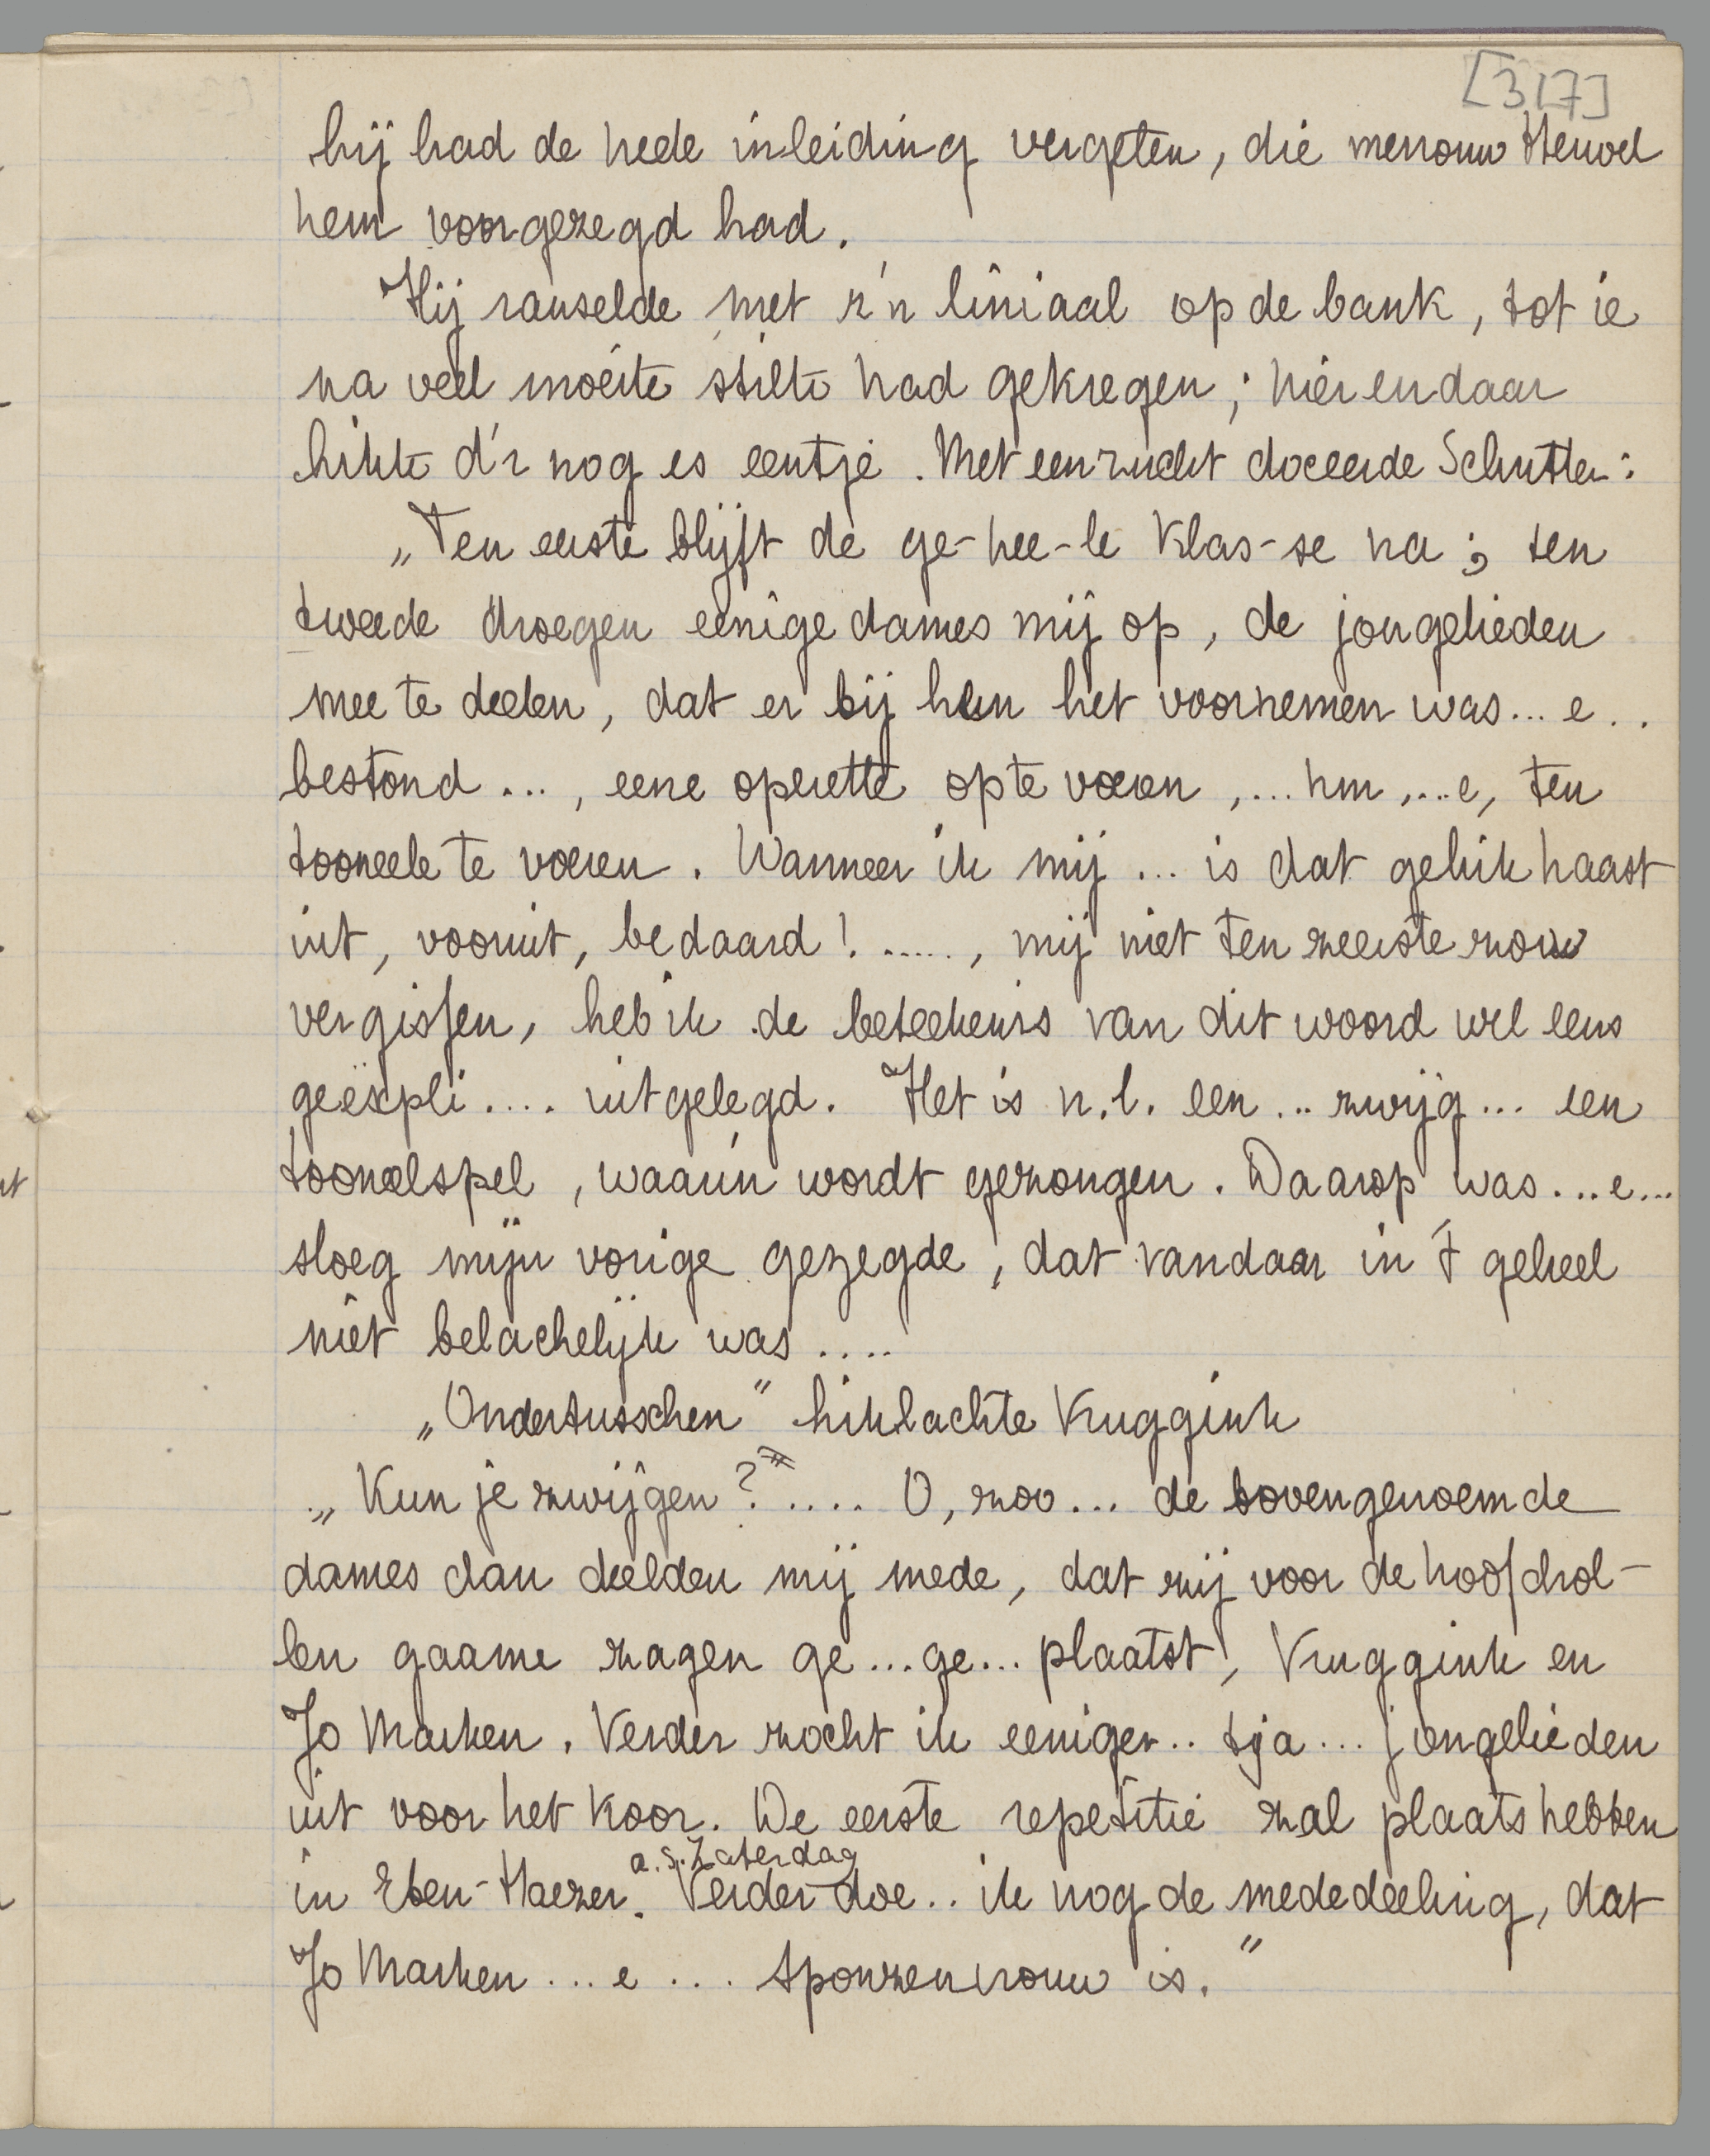 [317]
hij had de heele inleiding vergeten, die mevrouw Heuvel
hem voorgezegd had.
Hij ranselde met z'n liniaal op de bank, tot ie
na veel moeite stilte had gekregen; hier en daar
hikte d'r nog es eentje. Met een zucht doceerde Schutter:
„Ten eerste blijft de ge-hee-le klas-se na; ten
tweede droegen eenige dames mij op, de jongelieden
mee te deelen, dat er bij hen het voornemen was... e..
bestond ..., eene operette op te voeren, ... hm, ... e, ten
tooneele te voeren. Wanneer ik mij ... is dat gehik haast
uit, vooruit, bedaard! ....., mij niet ten zeerste zou
vergissen, heb ik de beteekenis van dit woord wel eens
geëxpli .... uitgelegd. Het is n.l. een .. zwijg ... een
tooneelspel, waarin wordt gezongen. Daarop was ... e...
sloeg mijn vorige gezegde, dat vandaar in 't geheel
niet belachelijk was ....
„Ondertusschen" hiklachte Kruggink
„Kun je zwijgen? .... O, zoo ... de bovengenoemde
dames dan deelden mij mede, dat zij voor de hoofdrol-
len gaarne zagen ge ... ge ... plaatst, Kruggink en
Jo Marken. Verder zocht ik eeniger .. tja ... jongelieden
uit voor het koor. De eerste repetitie zal plaats hebben
a.s. Zaterdag
in Eben-Haezer. Verder doe .. ik nog de mededeeling, dat
Jo Marken ... e .... sponzenvrouw is."